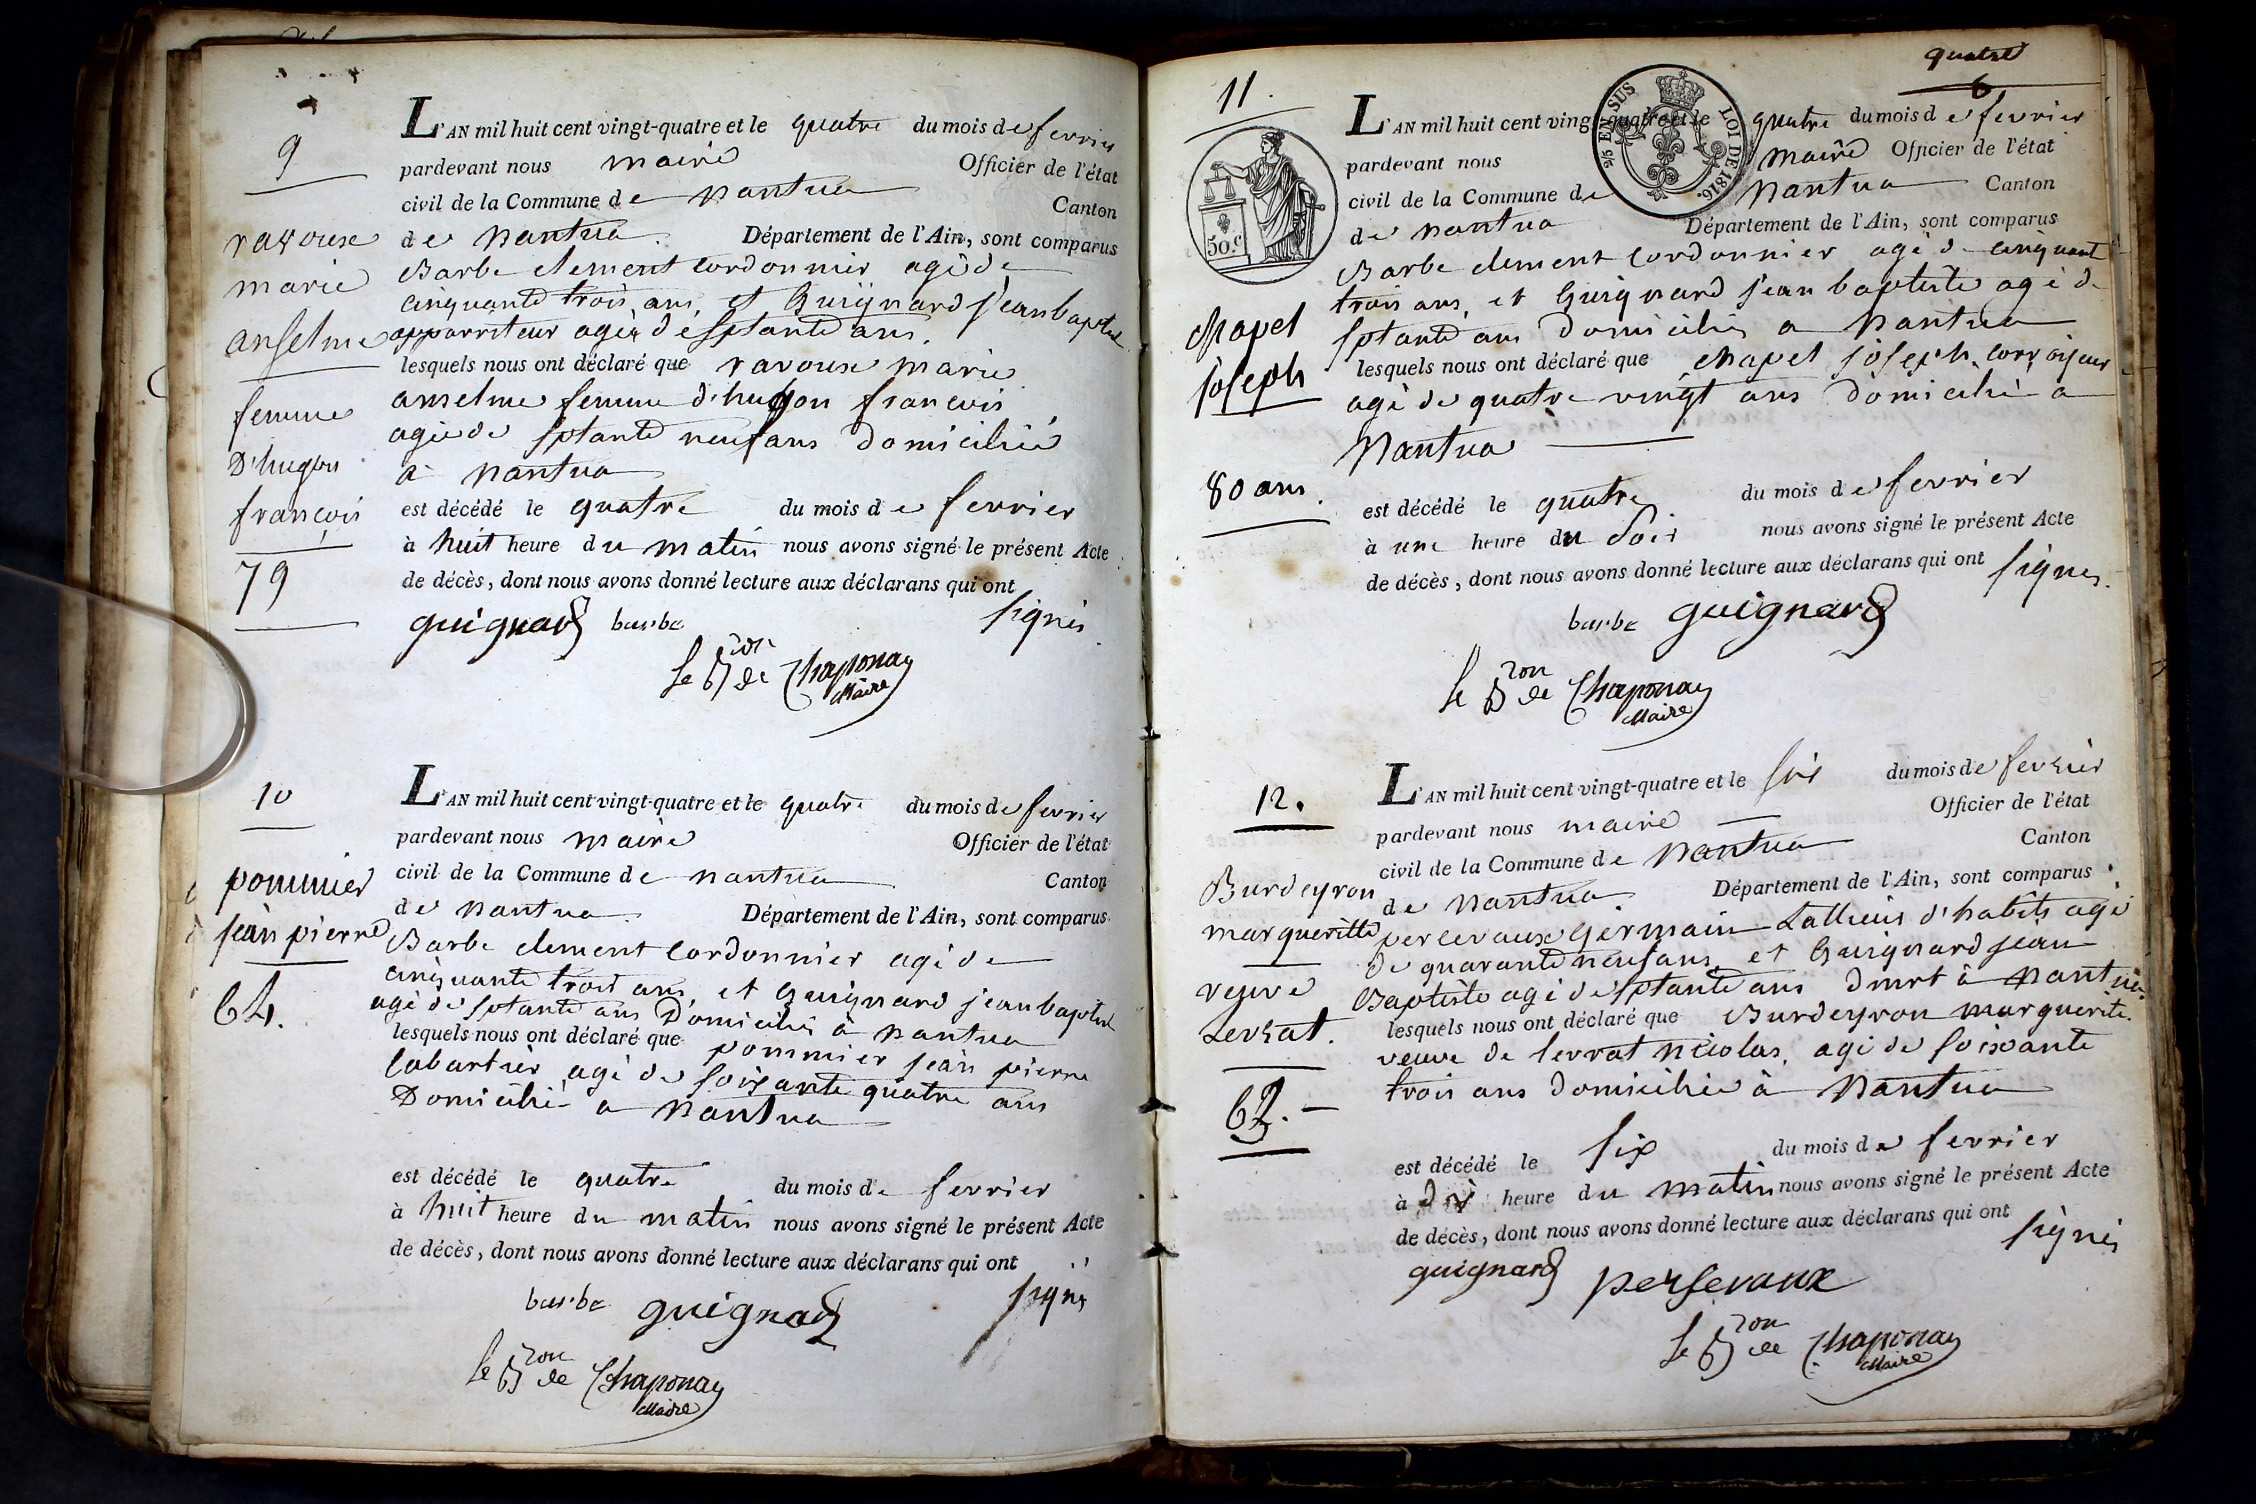 9
ravoux
marie
anselme
femme
D'hugon
françois
79
L'AN mil huit cent vingt-quatre et le quatre du mois de fevrier
pardevant nous maire Officier de l'état
civil de la Commune de nantua Canton
de Nantua. Département de l'Ain, sont comparus
Barbe clement cordonnier agé de
cinquante trois ans, et Guignard jean baptiste
apparriteur agés de septante ans.
lesquels nous ont déclaré que ravoux marie
anselme femme d'hugon francois
agée de septante neuf ans domiciliée
à nantua
est décédé le quatre du mois de fevrier
à huit heure du matin nous avons signé le présent Acte
de décès, dont nous avons donné lecture aux déclarans qui ont
signés
guignard barbe
le Bron de Chaponay
Maire
10
pommier
jean pierre
64.
L'AN mil huit cent vingt-quatre et le quatre du mois de fevrier
pardevant nous maire Officier de l'état
civil de la Commune de nantua Canton
de nantua. Département de l'Ain, sont comparus
Barbe clement cordonnier agé de
cinquante trois ans, et Guignard jean baptiste
agé de septante ans Domiciliés à nantua
lesquels nous ont déclaré que pommier jean pierre
cabartier agé de soixante quatre ans
Domicilié a nantua
est décédé le quatre du mois de fevrier
à huit heure du matin nous avons signé le présent Acte
de décès, dont nous avons donné lecture aux déclarans qui ont
signés
barbe guignard
le Bron de Chaponay
Maire
quatre
6
11.
2/5 EN SUS
LOI DE 1816.
50.c
chapel
joseph
80 ans.
L'AN mil huit cent vingt-quatre et le quatre du mois de fevrier
pardevant nous maire Officier de l'état
civil de la Commune de nantua Canton
de nantua Département de l'Ain, sont comparus
Barbe clement cordonnier agé de cinquant
trois ans, et Guignard jean baptiste agé de
septante ans domiciliés a nantua
lesquels nous ont déclaré que chapel joseph corroyeur
agé de quatre vingt ans domicilié a
Nantua
est décédé le quatre du mois de fevrier
à une heure du soir nous avons signé le présent Acte
de décès, dont nous avons donné lecture aux déclarans qui ont signés.
barbe guignard
le Bron de Chaponay
Maire
12.
Burdeyron
margueritte
veuve
Levrat.
63.
L'AN mil huit cent vingt-quatre et le six du mois de fevrier
pardevant nous maire Officier de l'état
civil de la Commune de nantua Canton
de nantua. Département de l'Ain, sont comparus
percevaux germain tallieur d'habits agé
de quarante neuf ans, et Guignard jean
Baptiste agé de septante ans dmrt à nantua.
lesquels nous ont déclaré que Burdeyron marguerite
veuve de levrat nicolas, agé de soixante
trois ans domiciliée à nantua
est décédé le six du mois de fevrier
à heure du matin nous avons signé le présent Acte
de décès, dont nous avons donné lecture aux déclarans qui ont
signés
guignard persevaux
le Bron de Chaponay
Maire